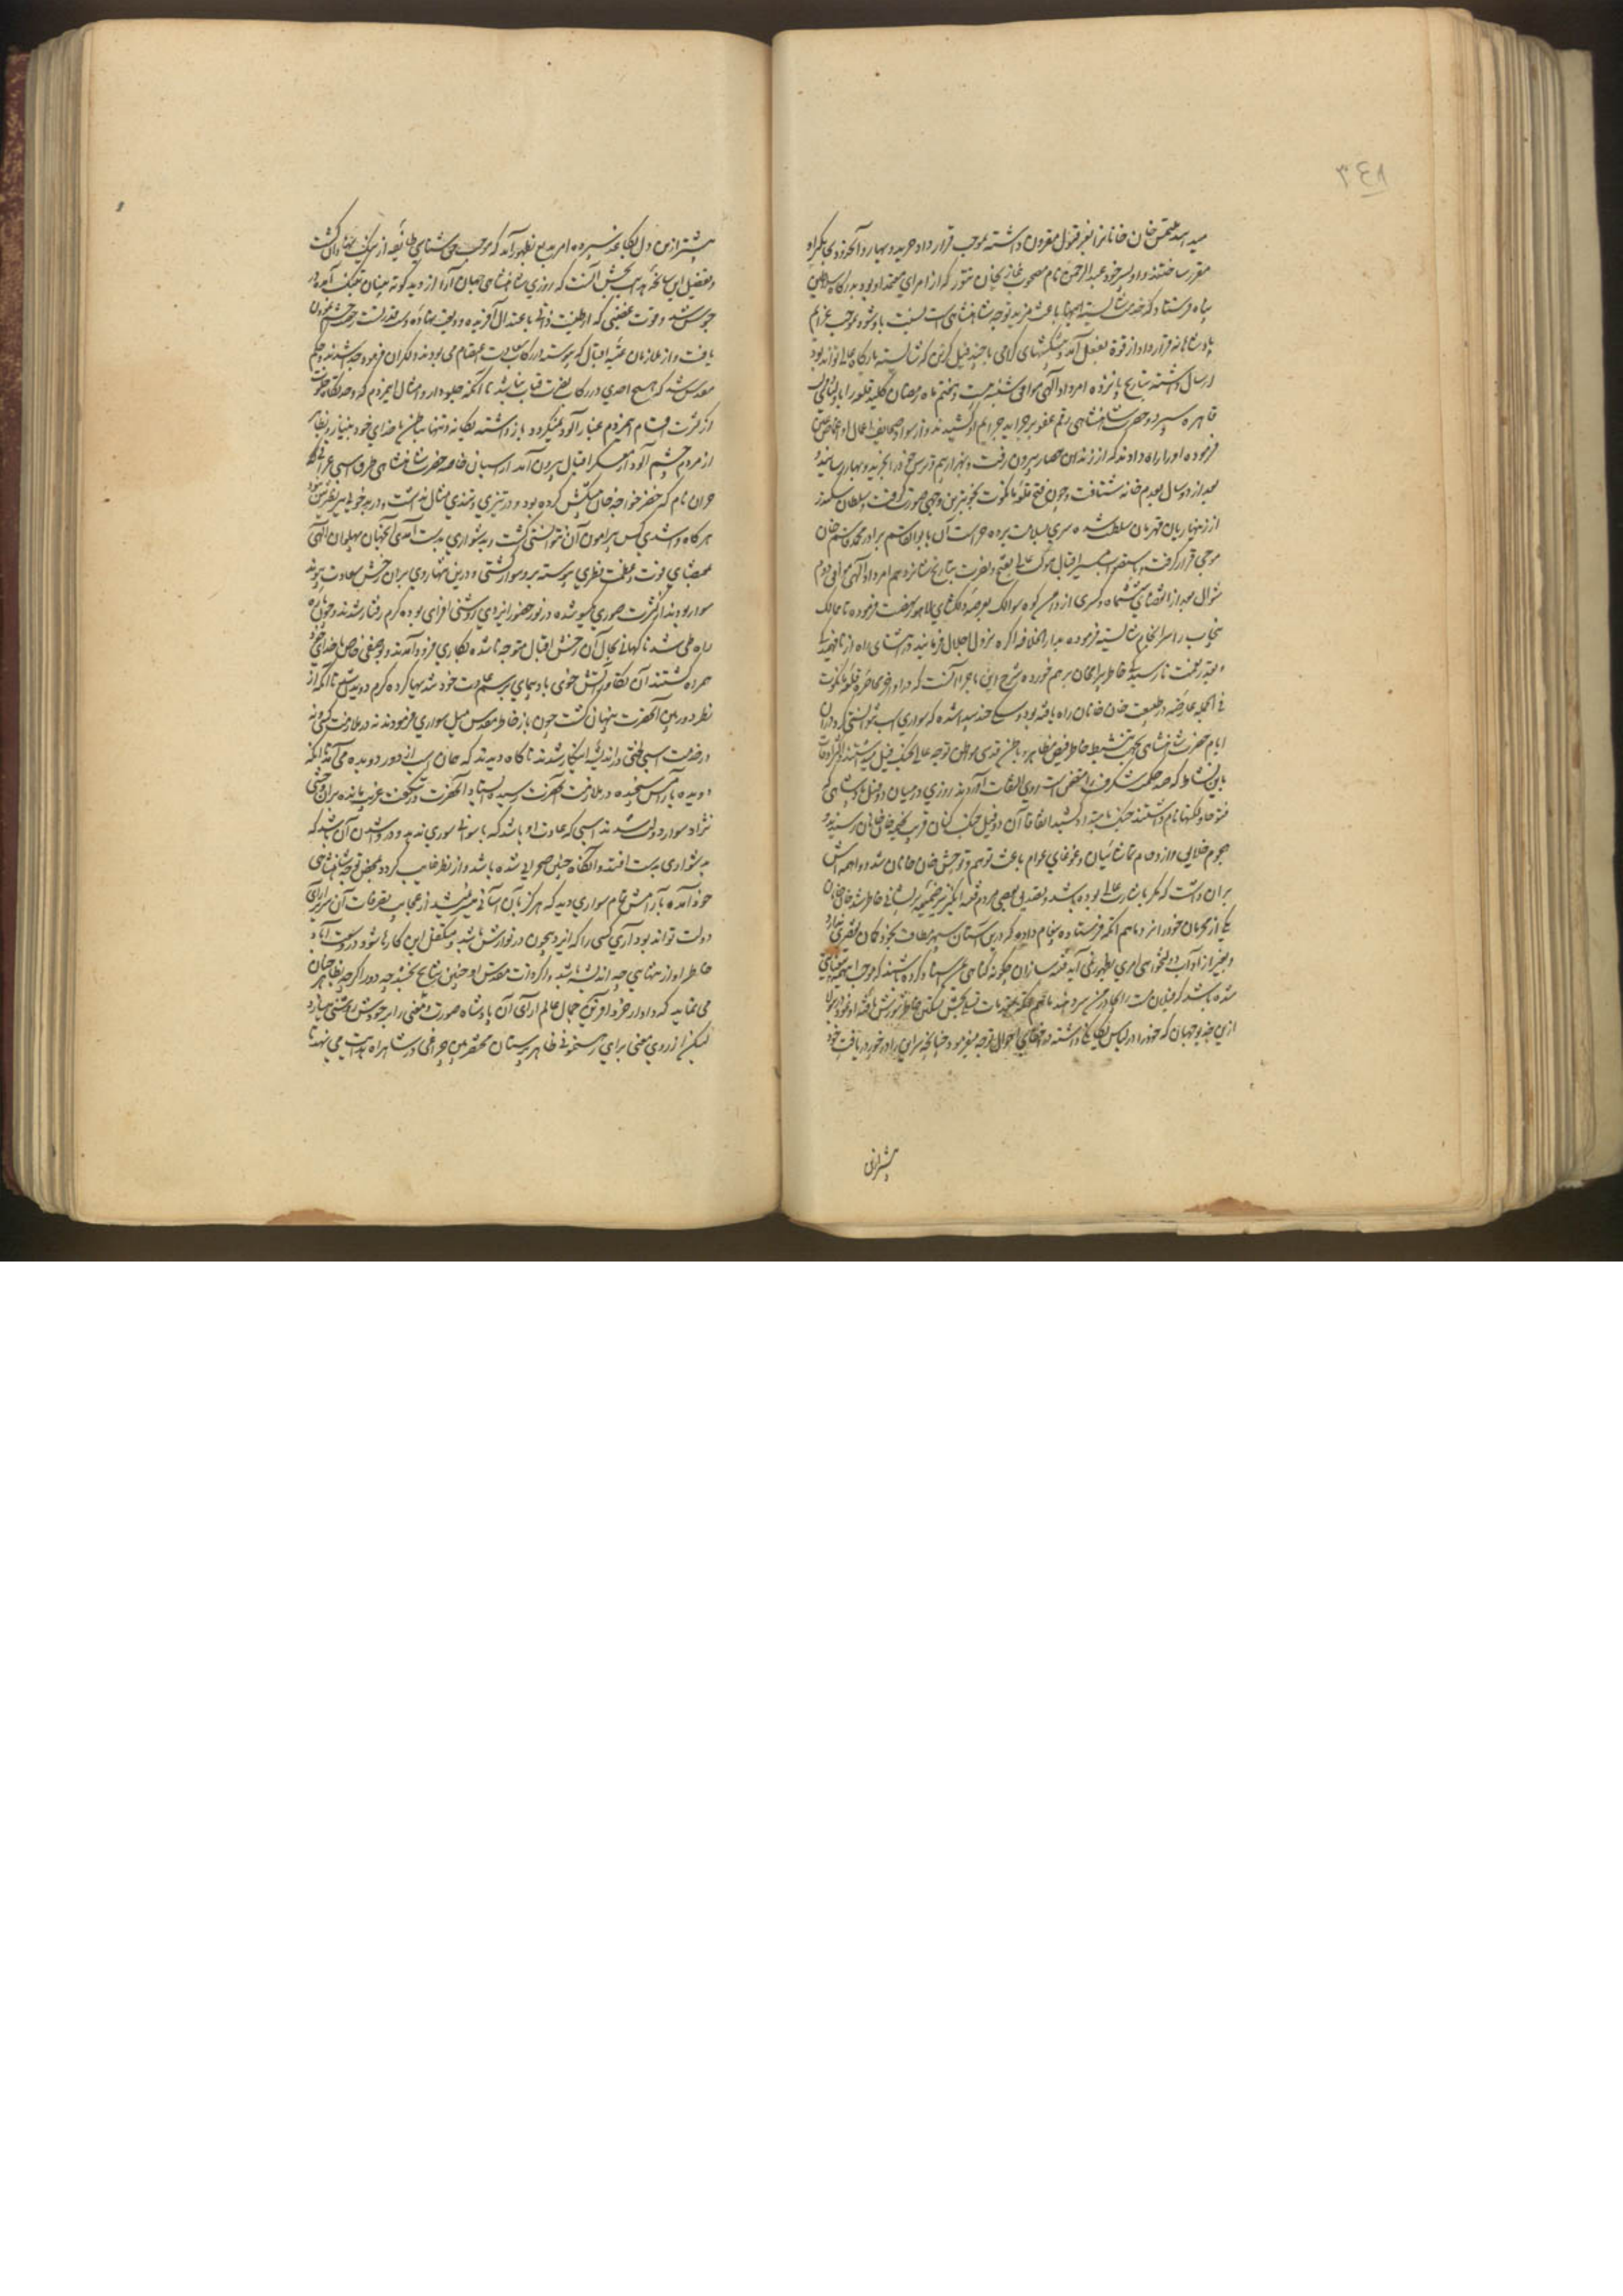 ٣٤٨
خان خانان بعز قبول مقرون داشته بموجب قرارداد خرید و بهار و آنحدود بجاگیر او
مقرر ساختند و او پسر خود عبدالرحمن نام مصحوب غازیخان تنور که از امرای معتمد او بود بدرگاه سلاطین
پناه فرستاد که خدمت شایسته اینها باعث مزید توجه شاهنشاهی است نسبت باو شود بموجب عزایم
پادشاهانه قرارداد از قوة بفعل آمد و پیشکشهای گرامی با چند فیل گزین که شایسته بارگاه عالی تواند بود
ارسال داشته بتاریخ پانزده امرداد الهی موافق شنبه بیست و هفتم ماه رمضان کلید قلعه را باولیای دولت
قاهره سپرد و حضرت شاهنشاهی رقم عفو بر جراید جرایم او کشیدند و از سواد صحایف اعمال او اغماض عین
فرموده او را راه دادند که از زندان حصار بیرون رفت و بهزار بیم و ترس خود را بخرید و بهار رسانید و
بعد از دو سال بعدم خانه شتافت و چون فتح قلعه مانکوت بخوبترین وجهی صورت گرفت و سلطان سکندر
از زنهاریان قهرمان سلطنت شده سری بسلامت برده حراست آن بابوالقاسم برادر محمد قاسم خان
موجی قرار گرفت و مستقر سریر اقبال موکب عالی بفتح و نصرت بتاریخ شانزدهم امرداد الهی موافق دوم
شوال بعد از انقضای ششماه و کسری از دامن کوه سوالک بعرصه دلکشای لاهور نهضت فرموده تا ممالک
پنجاب را سرانجام شایسته فرموده بدارالخلافه آگره نزول اجلال فرمایند و در اثنای راه از نافهمیدگی
و بحقیقت نارسیدگی خاطر بیرامخان برهم خورده شرح این ماجرا آنست که در اواخر محاصره قلعه مانکوت
فی الجمله عارضه در طبیعت خان خانان راه یافته بود و دملی چند پیدا شده که سواری اسب نتوانستی کرد در آن
ایام حضرت شاهنشاهی بجهت تنشیط خاطر فیض مظاهر و باطن قدسی مواطن توجه عالی بجنگ فیل میداشتند و اکثر اوقات
باین نشاط که صد حکمت شگرف را متضمن است روی التفات آوردند روزی در میان دو فیل پادشاهی که
فتوحا و لکنها نام داشتند جنگ بامتداد کشید اتفاقا آن دو فیل جنگ کنان قریب بخیمه خان خانان رسیدند و
هجوم خلایق و ازدحام تماشائیان و غوغای عوام باعث توهم و توحش خان خانان شد و واهمه اش
بران داشت که مگر باشارت عالی بوده باشد و بتصدیق بعضی مردم فتنه انگیز ضمیمه پریشانی خاطر شد خان خانان
یکی از محرمان خود را نزد ماهم انکه فرستاده پیغام داده که درین آستان سپهر مطاف بخود گمان تقصیری ندارد
و بغیر از آداب دولتخواهی امری بظهور نمی آید فتنه سازان چگونه گناهی بمن اسناد کرده باشند که موجب اینهمه بیعنایتی
شده باشد که فیلان مست را بجانب خیمه من سر دهند ماهم انکه بمقدمات تسلی بخش تسکین خاطر شورش یافته او نمود و پیش
ازین خدیو جهان که خود را در لباس بیگانگی داشته در اختفای احوال توجه میفرمود چنانچه سری را در خور دریافت خود
پیشتر ازین
پیشتر ازین ... امر بدیع بظهور آمد که موجب حق شناسی طایفه از نیک نهادان گشت
و تفصیل این سانحه هدایت بخش آنست که روزی شاهنشاهی جهان آرا از دید کوته بینان بتنگ آمده در
جوش شد و قوت غضبی که او طینت ذاتی باعتدال آفریده و ودیعت نهاده دست قدرت است چشم خون
یافت و از ملازمان عتبه اقبال که پیوسته در رکاب سعادت بمقام می بودند دیگران فرمود جدا شدند و حکم
مقدس شد که هیچ احدی در رکاب نصرت قباب نباشد تا آنکه جلودار و امثال این مردم که در خدمتگاه خلوت
از کثرت اقسام این مردم غبار آلود میگردد بازداشته یگانه و تنها بباطن با خدای خود بنیاز و بظاهر
از مردم خشم آلود از معسکر اقبال بیرون آمد از اسپان خاصه حضرت شاهنشاهی طرفه اسپی عراقی
حیران نام که خضر خواجه خان پیشکش کرده بود و در تیزی و تندی مثال نداشت و در بدخوئی بی نظیر بود
هرگاه وا شدی کس پیرامون آن نتوانستی گشت و بدشواری بدست آمدی آن جهان پهلوان الهی
بمقتضای قوت و عظمت فطری پیوسته برو سوار گشتی و درین تنها روی بران رخش سعادت پیوند
سوار بودند از کثرت صوری یکسو شده در نور حضور ایزدی روشنی افزای بوده گرم رفتار شدند و چون پاره
راه طی شد ناگهانی بحال آن رخش اقبال متوجه ناشده بکاری فرود آمدند و بوضعی خاص با خدای خود
همراه گشتند آن تکاور آتش خوی بادپای برسم عادت خود تندیها کرده گرم دویدن شد تا آنکه از
نظر دوربین آنحضرت پنهان گشت چون باز خاطر مقدس میل سواری فرمودند نه در ملازمت کسی و نه
در خدمت اسپی لختی در اندیشه اینکار شدند ناگاه دیدند که همان اسپ از دور دویده می آمد تا آنکه
دویده بآرامش سنجیده در ملازمت آنحضرت رسیده ایستاد آنحضرت در شگفت غریب مانده بران وحشی
نژاد سوار دولت شدند اسپی که عادت او باشد که بآسانی سواری ندهد و در وا شدن آن باشد که
بدشواری بدست افتد و آنگاه چنین صحرائی شده باشد و از نظر غایب گردد بمحض توجه شاهنشاهی
خود آمده بآرامش تمام سواری دهد که هرگز بآن آسانی میسر نمیشد از عجایب تصرفات آن سریر آرای
دولت تواند بود آری کسی را که ایزد بیچون در نوازش باشد و متکفل این کارها شود در وسعت آباد
خاطر او از تنهایی چه اندیشه باشد و اگر ذات مقدس او چنین نتایج بخشد چه دور اگر چه بظاهر چنان
می نماید که دادار خرد آفرین جمال عالم آرای آن پادشاه صورت و معنی را بر خودش روشنی میدارد
لیکن از روی معنی برای رهنمونی ظاهرپرستان مختصربین چراغی در شاهراه هدایت می نهد تا